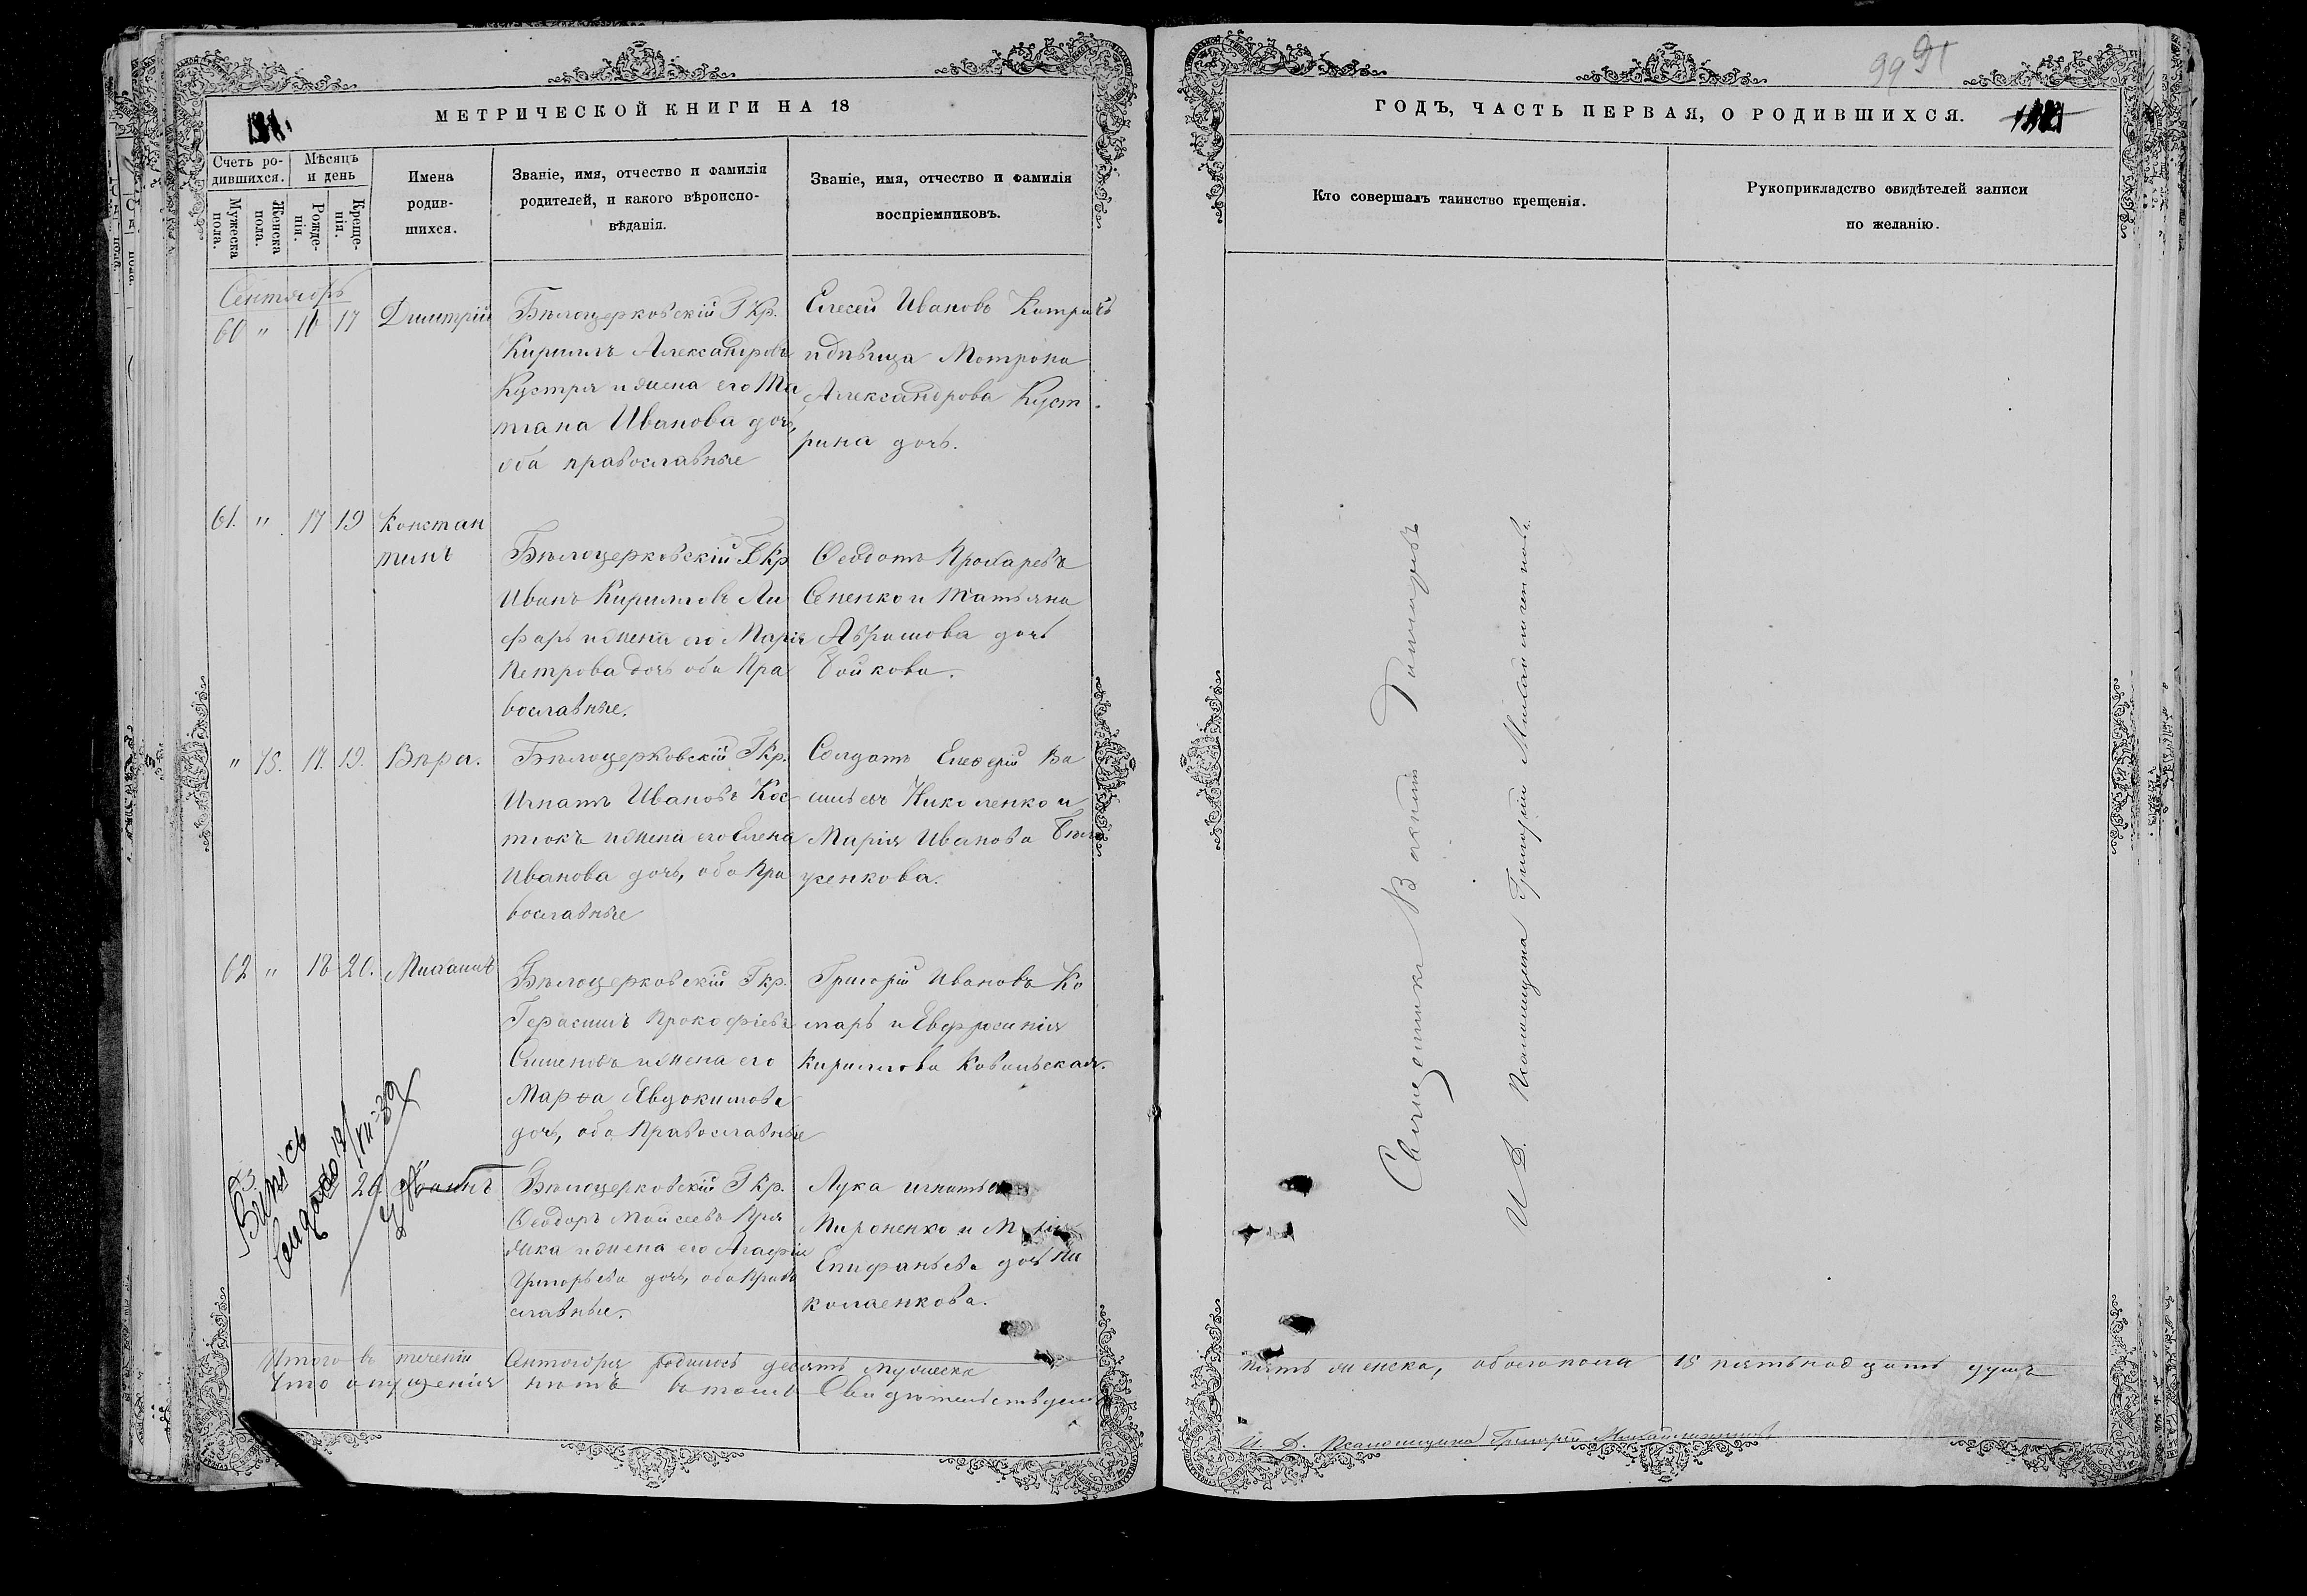 99 91
МЕТРИЧЕСКОЙ КНИГИ НА 18
ГОДЪ, ЧАСТЬ ПЕРВАЯ, О РОДИВШИХСЯ.
Счетъ ро-
дившихся.
Мѣсяцъ
и день
Мужеска
пола.
Женска
пола.
Рожде-
нія.
Креще-
нія.
Имена
родив-
шихся.
Званіе, имя, отчество и фамилія
родителей, и какого вѣроиспо-
вѣданія.
Званіе, имя, отчество и фамилія
воспріемниковъ.
Кто совершалъ таинство крещенія.
Рукоприкладство свидѣтелей записи
по желанію.
Сентябрь
60 " 16 17 Димитрій
Бѣлоцерковскій Г Кр.
Кириллъ Александровъ
Кустря и жена его Та
тіана Иванова дочь,
оба православные
Елесей Ивановъ
и дѣвица Мотрона
Александрова Куст
рина дочь.
61. " 17 19 Констан
тинъ
Бѣлоцерковскій Г Кр
Иванъ Кирилловъ Ли
фарь и жена его Марія
Петрова дочь оба Пра
вославные.
Ѳеодотъ
Сененко и Татьяна
Абрамова дочь
Бойкова.
" 75. 17. 19. Вѣра.
Бѣлоцерковскій Г Кр.
Игнатъ Ивановъ Кос
тюкъ и жена его Елена
Иванова дочь, оба Пра
вославные
Солдатъ Ва
сильевъ Николенко и
Марія Иванова
женкова.
62 " 18 20. Михаилъ
Бѣлоцерковскій Г кр.
Герасимъ Прокофіевъ
и жена его
Марѳа Евдокимова
дочь, оба Православные
Григорій Ивановъ Ко
марь и Евфросинія
Кириллова Ковальская.
63. 20 Іоаннъ
Бѣлоцерковскій Г Кр.
Ѳеодоръ Моисеевъ Пря
жка и жена его Агафія
Григорьева дочь, оба Право
славные.
Лука Игнатьевъ
Мироненко и Марія
Епифаньева дочь Ни
колаенкова.
Священникъ
И. Д. Псаломщика Григорій Михайличенковъ
Итого въ теченіи Сентября родилось десять мужеска
пять женска, обоего пола 15 пятьнадцать душъ
Что опущенія нѣтъ въ томъ Свидѣтельствуемъ
И. Д. Псаломщика Григорій Михайличенковъ